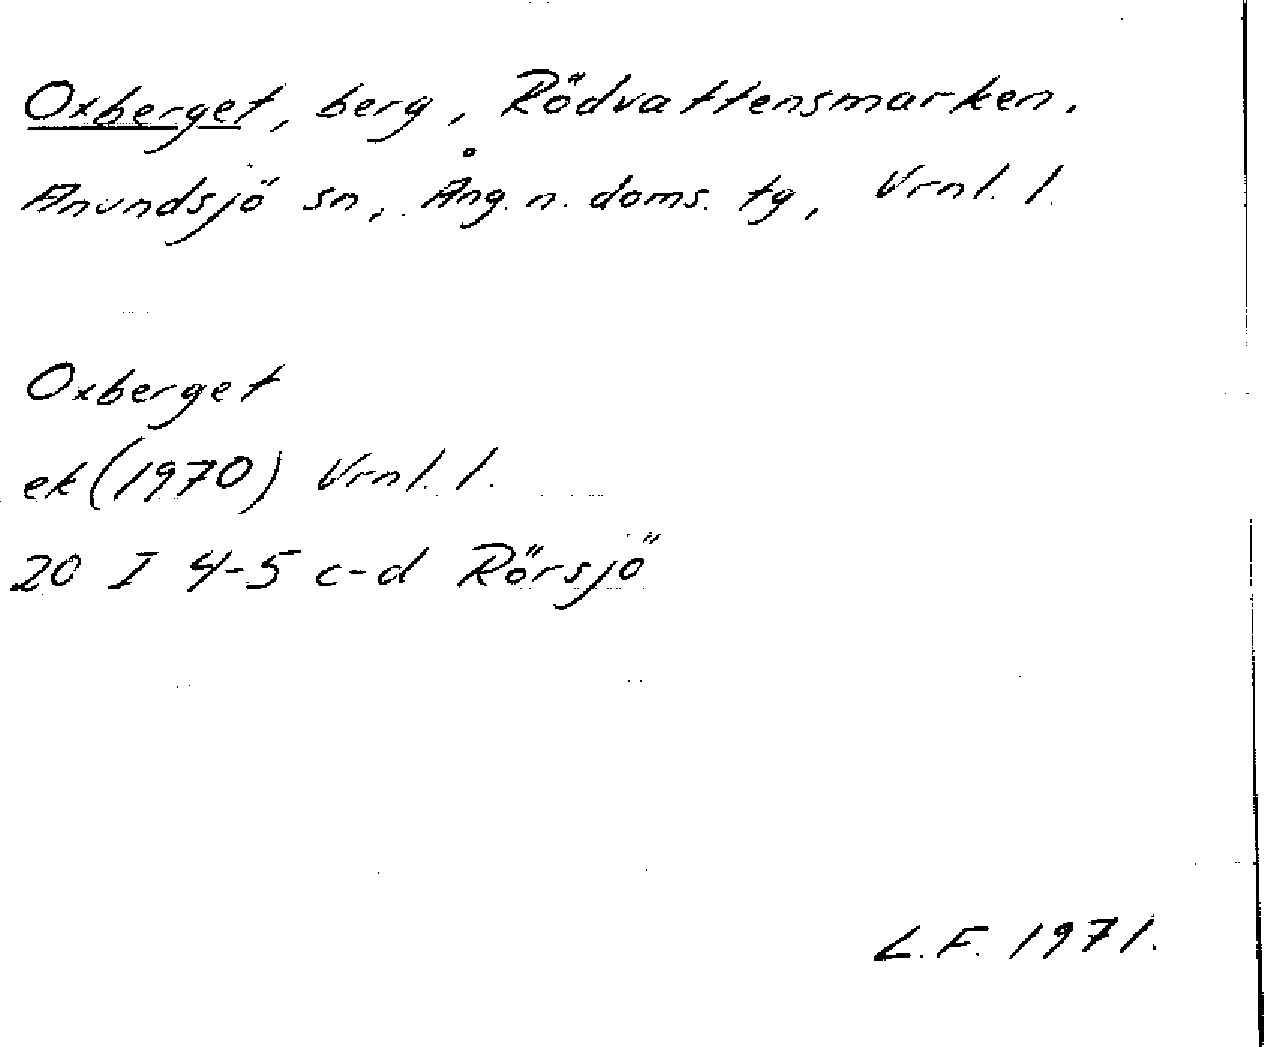 Oxberget, berg, Rödvattensmarken,
Anundsjö sn, Ång. n. doms. tg, Vrnl. l.
Oxberget
ek (1970) Vrnl. l.
20 I 4-5 c-d Rörsjö
L.F. 1971.